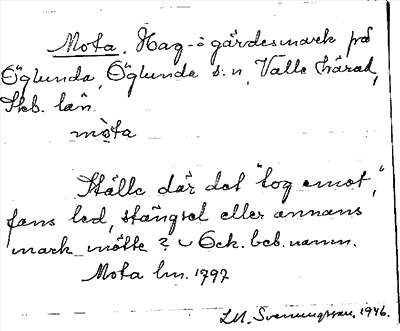 Mota. Hag- o gärdesmark på
Öglunda, Öglunda s:n, Valle härad,
Skb. län.
mòta
Ställe där det "tog emot",
fans led, stängsel eller annans
mark mötte? Ock. beb.namn.
Mota lm. 1797
L.M. Svenungsson. 1946.